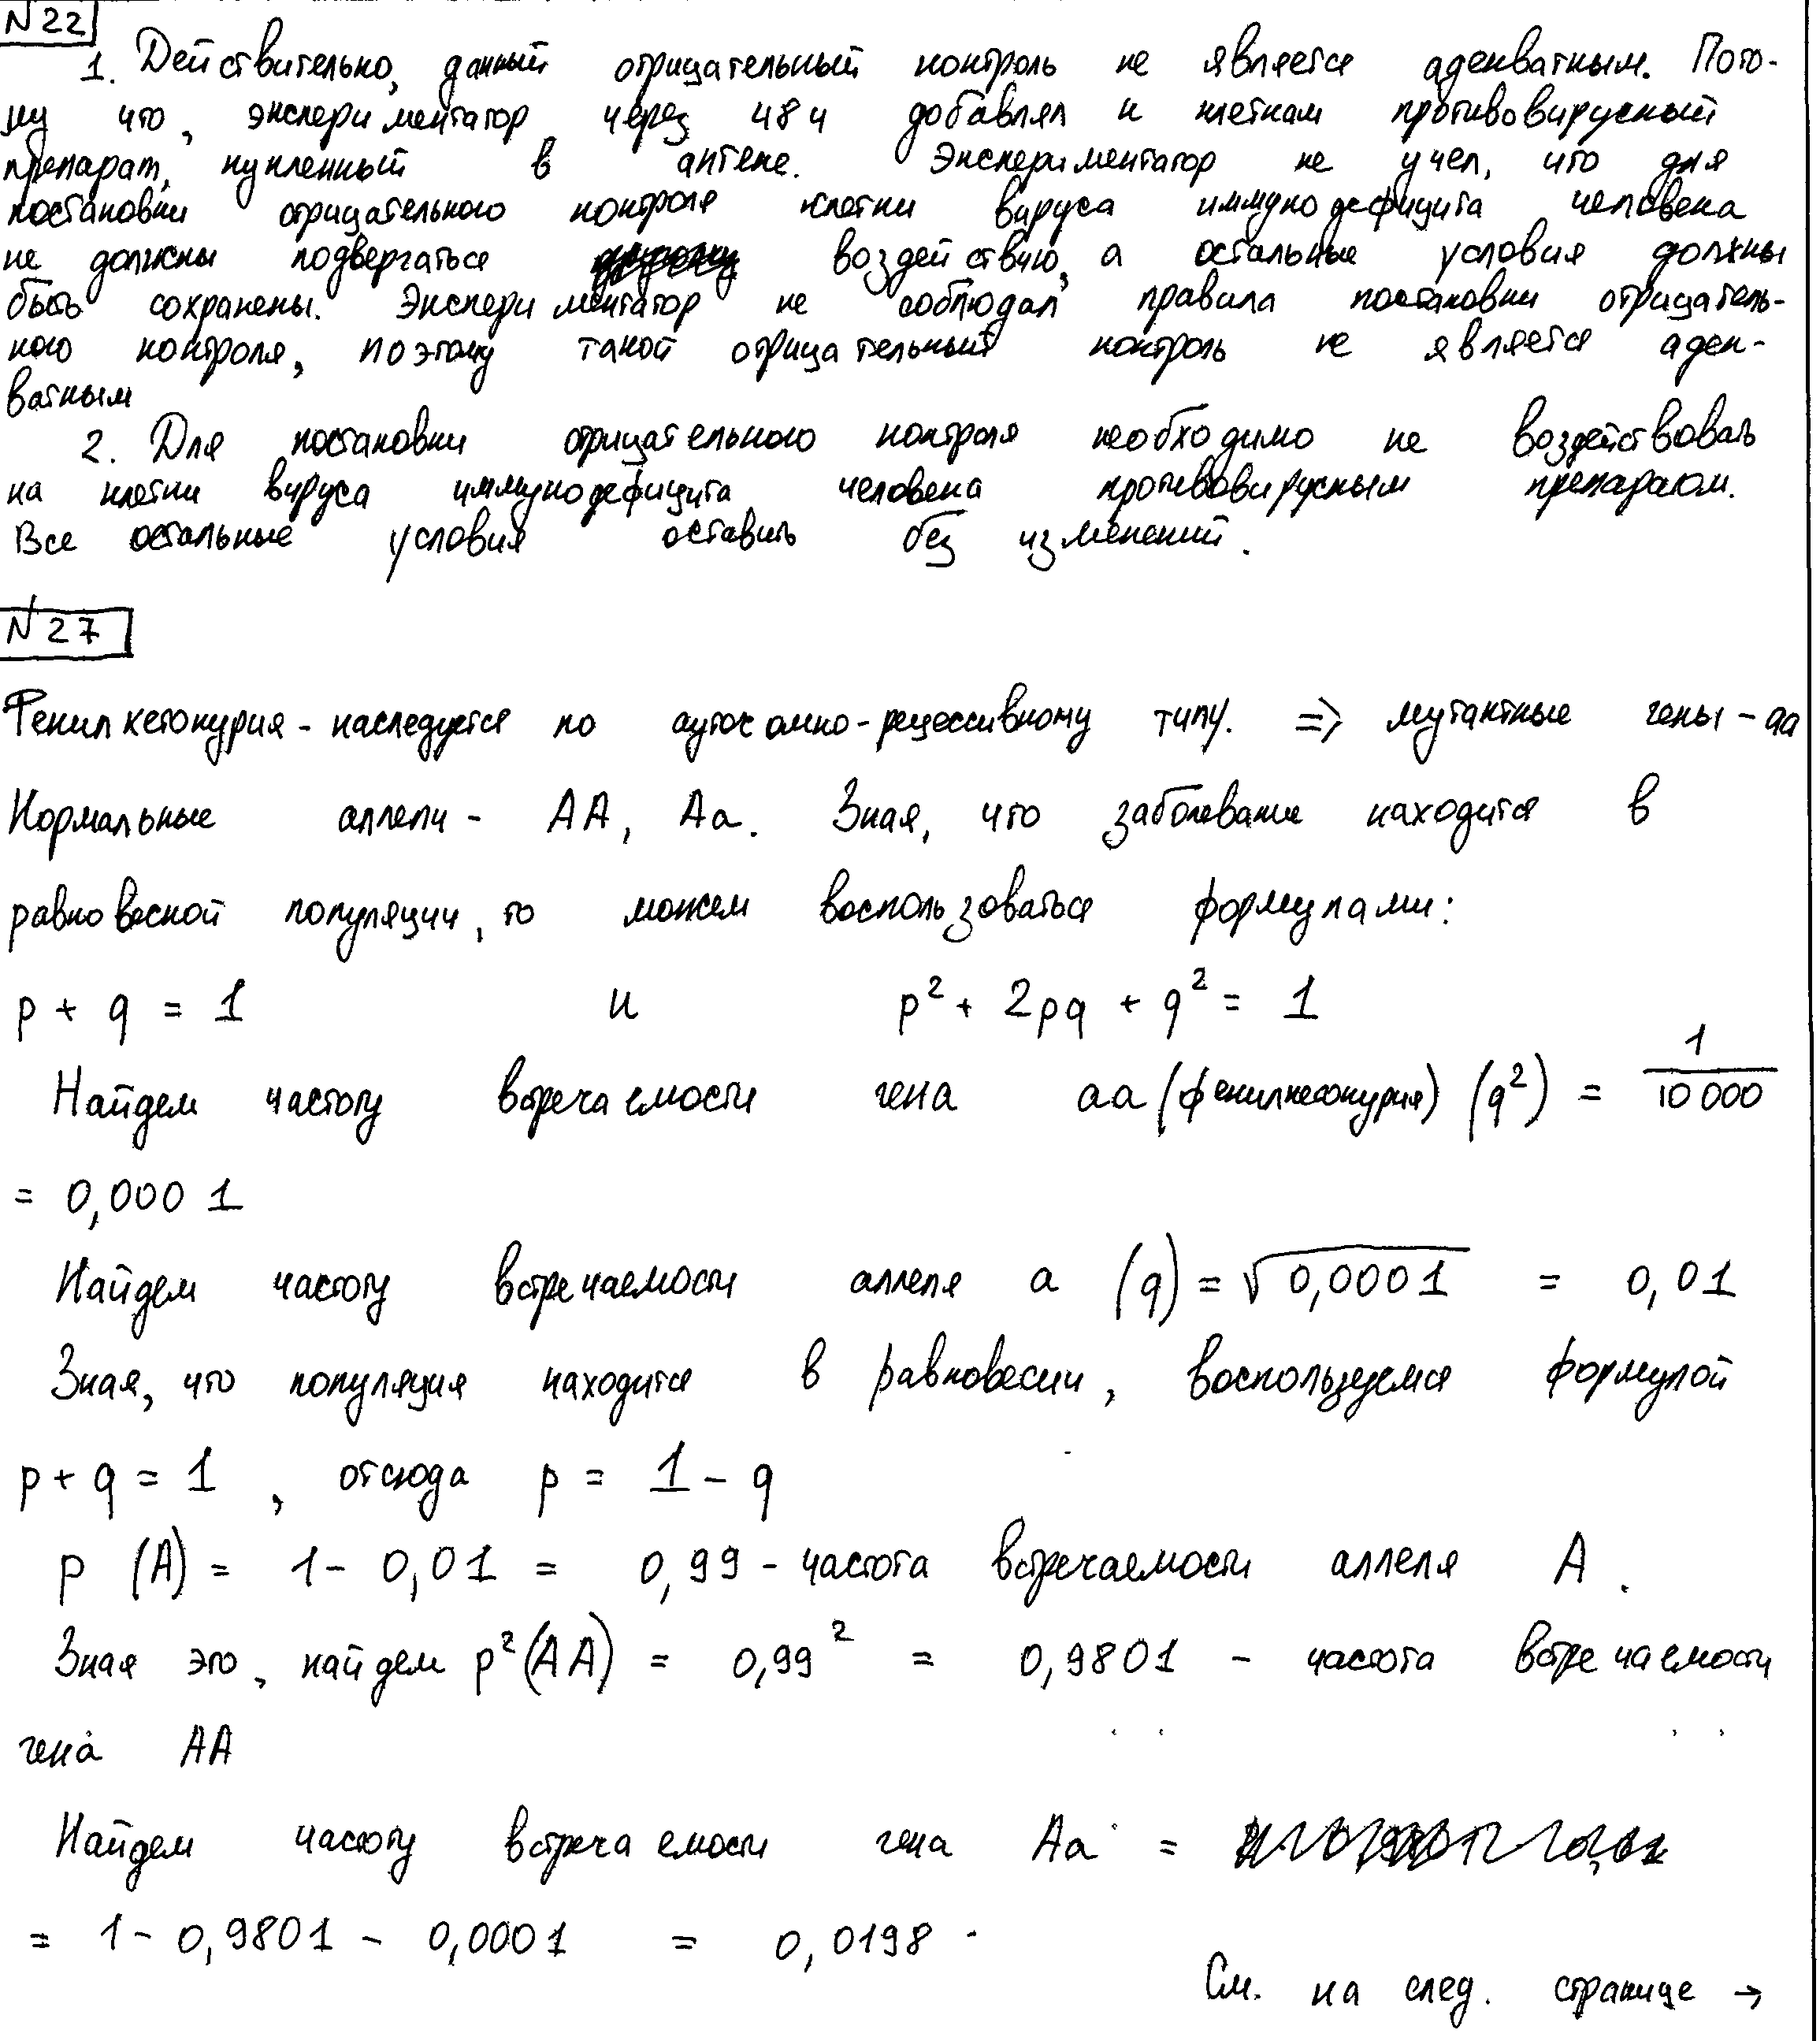 N22
1. Действительно, данный отрицательный контроль не является адекватным. Пото-
му что, экспериментатор через 48 ч добавлял к клеткам противовирусный
препарат, купленный в аптеке. Экспериментатор не учел, что для
постановки отрицательного контроля клетки вируса иммунодефицита человека
не должны подвергаться воздействию, а остальные условия должны
быть сохранены. Экспериментатор не соблюдал правила постановки отрицатель-
ного контроля, поэтому такой отрицательный контроль не является адек-
ватным
2. Для постановки отрицательного контроля необходимо не воздействовать
на клетки вируса иммунодефицита человека противовирусным препаратом.
Все остальные условия оставить без изменений.
N27
Фенилкетонурия - наследуется по аутосомно-рецессивному типу. => мутантные гены - аа
Нормальные аллели - АА, Аа. Зная, что заболевание находится в
равновесной популяции, то можем воспользоваться формулами:
p + q = 1 и p² + 2pq + q² = 1
Найдем частоту встречаемости гена аа (фенилкетонурия) (q²) = 1/10 000
= 0,0001
Найдем частоту встречаемости аллеля а (q) = √0,0001 = 0,01
Зная, что популяция находится в равновесии, воспользуемся формулой
p + q = 1, отсюда p = 1 - q
p (A) = 1 - 0,01 = 0,99 - частота встречаемости аллеля А.
Зная это, найдем p² (AA) = 0,99² = 0,9801 - частота встречаемости
гена АА
Найдем частоту встречаемости гена Аа =
= 1 - 0,9801 - 0,0001 = 0,0198
См. на след. странице →